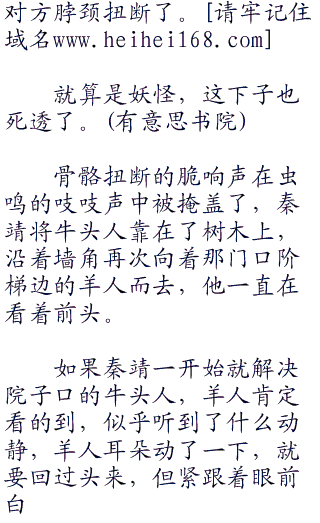 对方脖颈扭断了。[请牢记住
域名www.heihei168.com]
就算是妖怪，这下子也
死透了。(有意思书院)
骨骼扭断的脆响声在虫
鸣的吱吱声中被掩盖了，秦
靖将牛头人靠在了树木上，
沿着墙角再次向着那门口阶
梯边的羊人而去，他一直在
看着前头。
如果秦靖一开始就解决
院子口的牛头人，羊人肯定
看的到，似乎听到了什么动
静，羊人耳朵动了一下，就
要回过头来，但紧跟着眼前
白